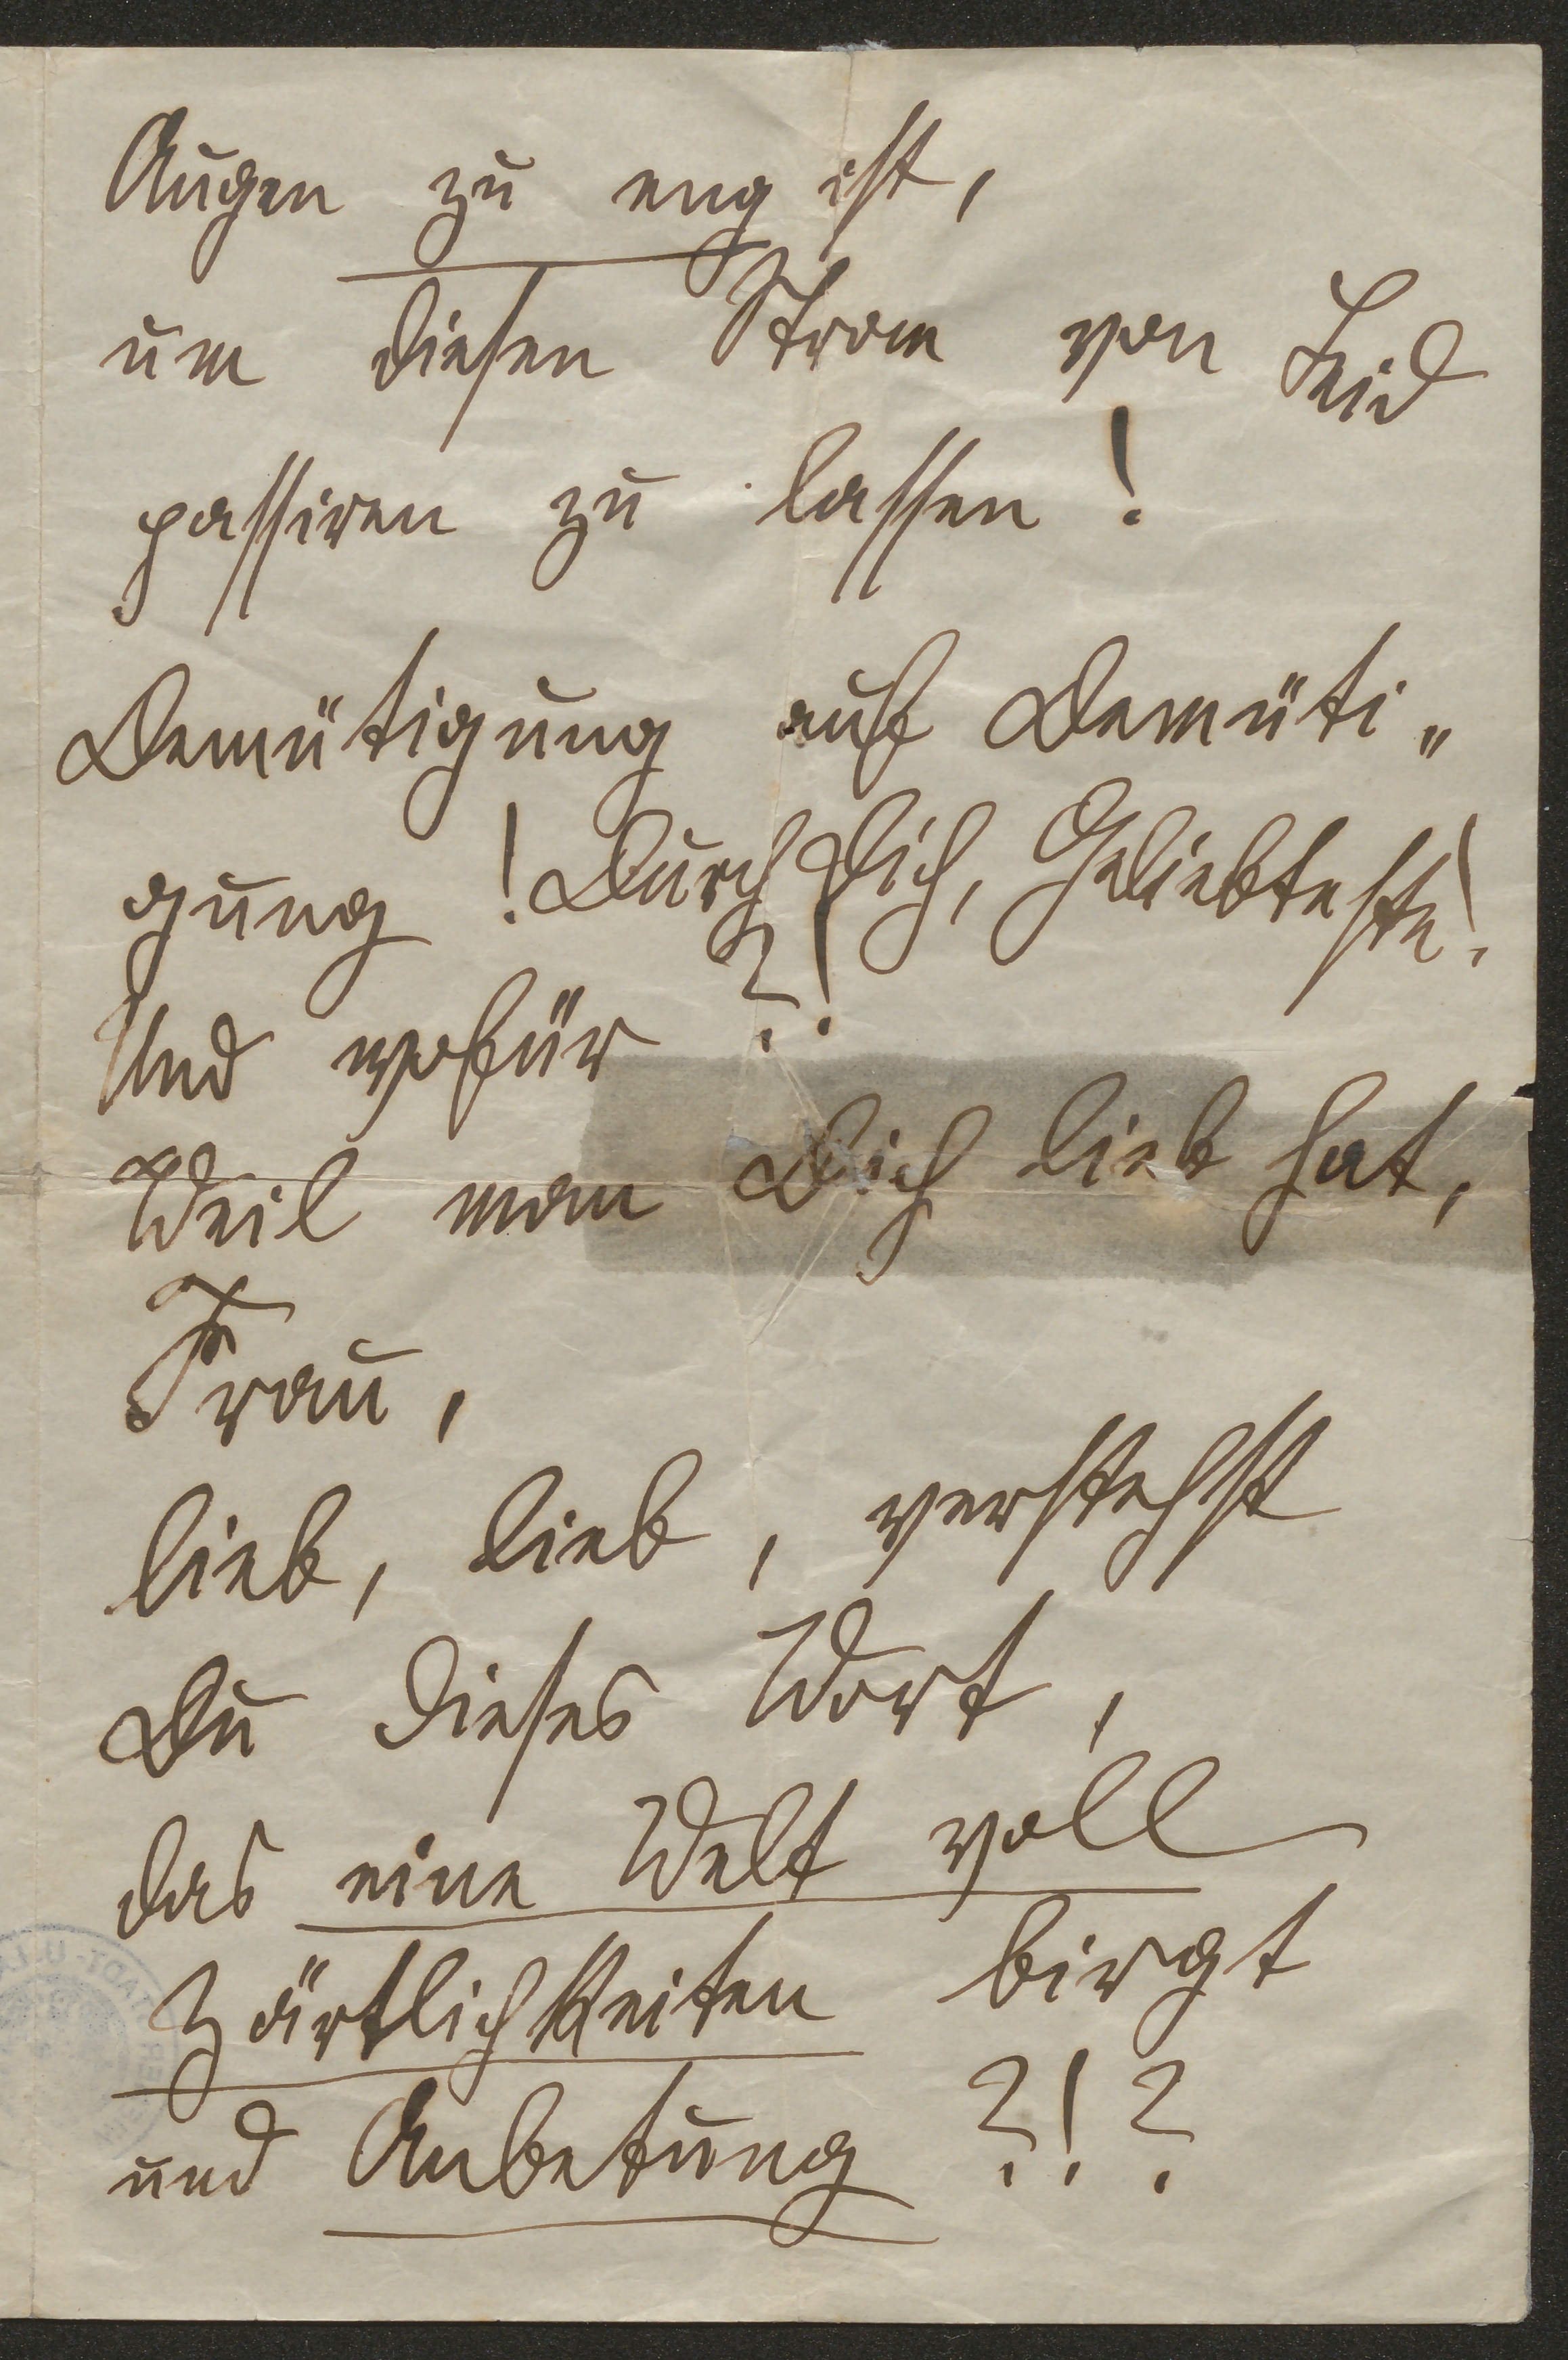 Augen zu eng ist,
um diesen Strom von Leid
passiren zu lassen!
Demütigung auf Demüti„
gung! Durch Dich, Geliebteste!
Und wofür?!
Weil man Dich lieb hat,
Frau,
lieb, lieb, verstehst
Du dieses Wort,
das eine Welt voll
Zärtlichkeiten birgt
und Anbetung?!?